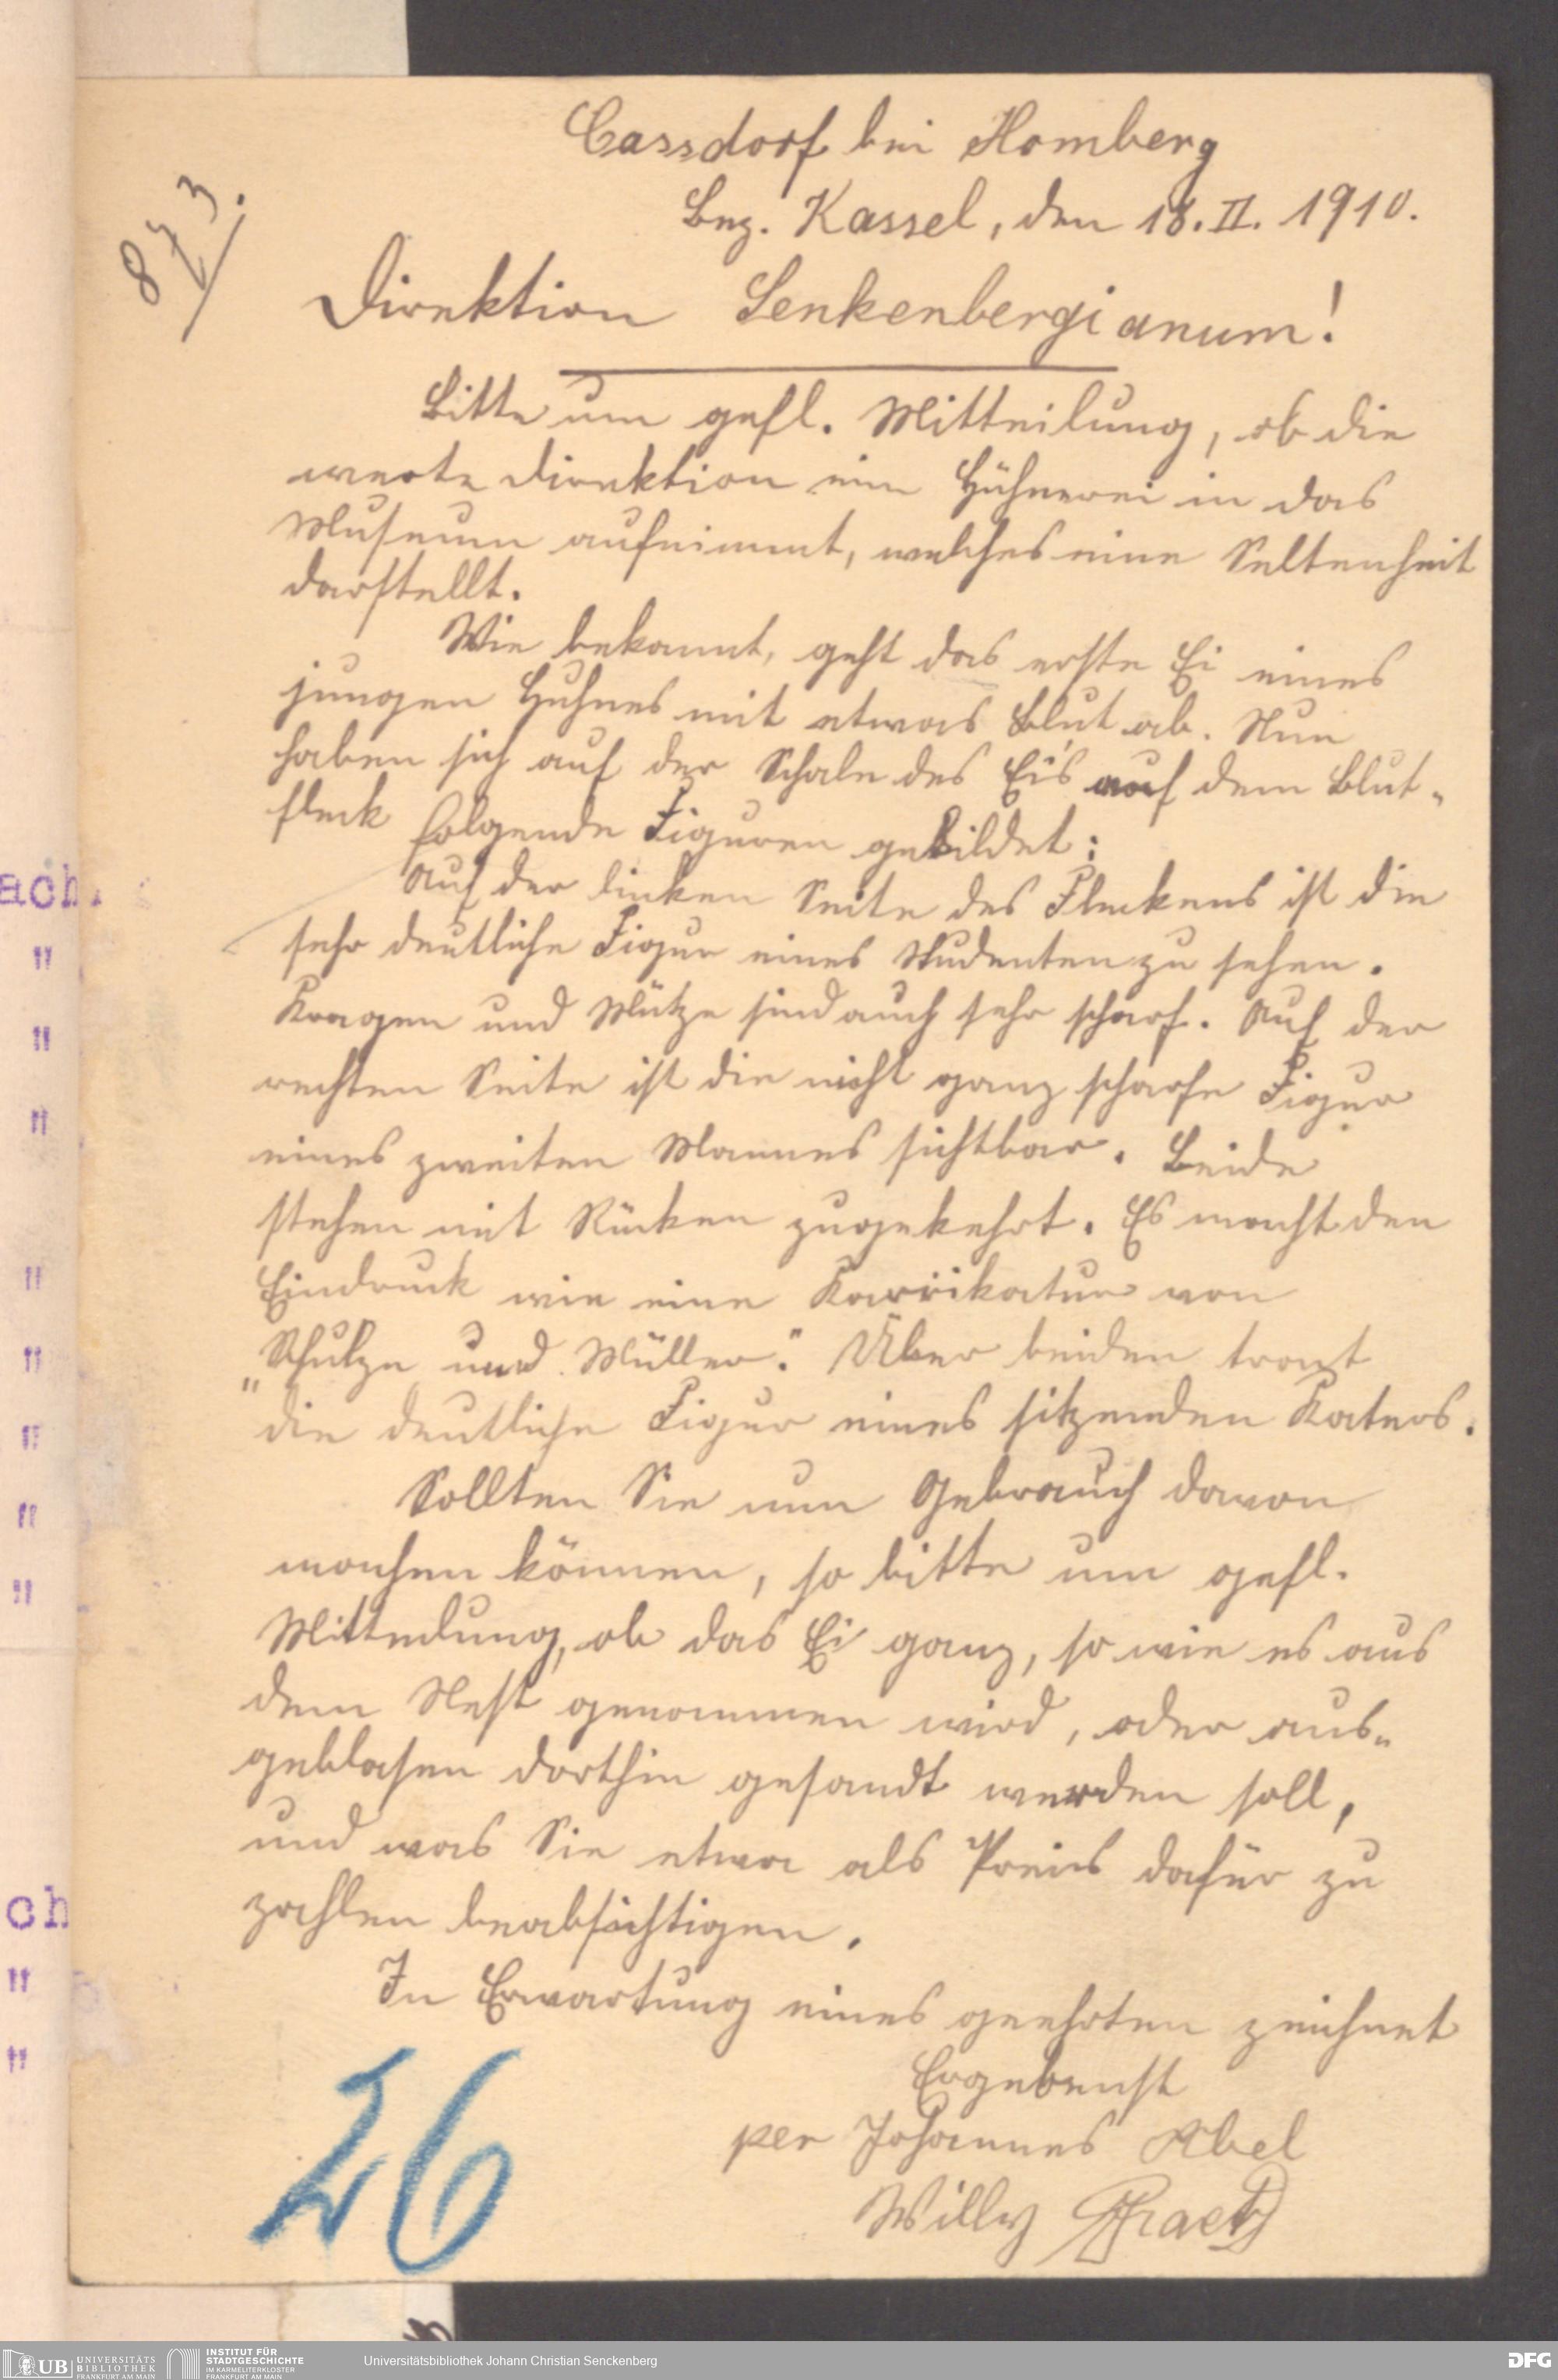 Cassdorf bei Homberg
Bez. Kassel, den 18. II. 1910.
Direktion Senkenbergianum!
Bitte um gefl. Mitteilung, ob die
werte Direktion ein Hühnerei in das
Museum aufnimmt, welches eine Seltenheit
darstellt.
Wie bekannt, geht das erste Ei eines
jungen Huhnes mit etwas Blut ab. Nun
haben sich auf der Schale des Ei's auf dem Blut-
fleck folgende Figuren gebildet:
Auf der linken Seite des Fleckens ist die
sehr deutliche Figur eines Studenten zu sehen.
Kragen und Mütze sind auch sehr scharf. Auf der
rechten Seite ist die nicht ganz scharfe Figur
eines zweiten Mannes sichtbar. Beide
stehen mit Rücken zugekehrt. Es macht den
Eindruck wie eine Karrikatur von
„Schulze und Müller." Über beiden tront
die deutliche Figur eines sitzenden Katers.
Sollten Sie nun Gebrauch davon
machen können, so bitte um gefl.
Mitteilung, ob das Ei ganz, so wie es aus
dem Nest genommen wird, oder aus-
geblasen dorthin gesandt werden soll,
und was Sie etwa als Preis dafür zu
zahlen beabsichtigen.
In Erwartung eines geehrten zeichnet
Ergebenst
per Johannes Abel
Willy
26
ach.
"
"
"
"
"
"
"
"
ch
"
"
UB UNIVERSITÄTS
BIBLIOTHEK
FRANKFURT AM MAIN
INSTITUT FÜR
STADTGESCHICHTE
IM KARMELITERKLOSTER
FRANKFURT AM MAIN
Universitätsbibliothek Johann Christian Senckenberg
DFG